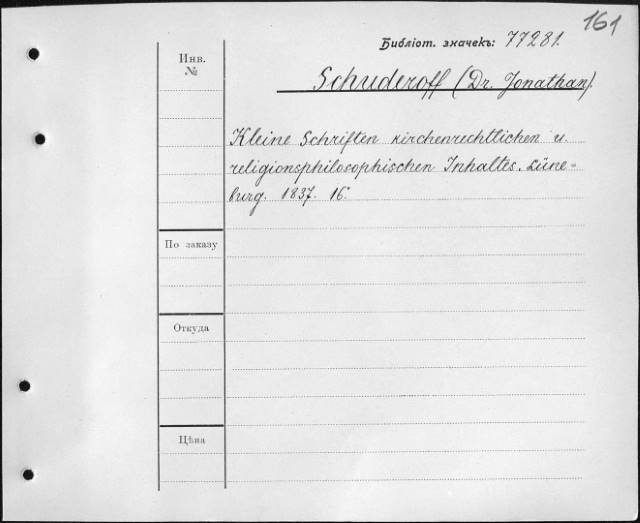 161
Библіот. значекъ: 77281.
Инв.
№
Schuderoff (Dr. Jonathan).
Kleine Schriften kirchenrechtlichen u.
religionsphilosophischen Inhaltes. Lüne-
burg. 1837. 16.
По заказу
Откуда
Цѣна